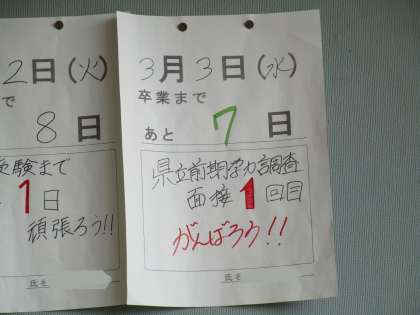 2日(火)
で
8日
受験まで
1日
頑張ろう!!
氏名
3月3日(水)
卒業まで
あと 7日
県立前期学力調査
面接1回目
がんばろう!!
氏名